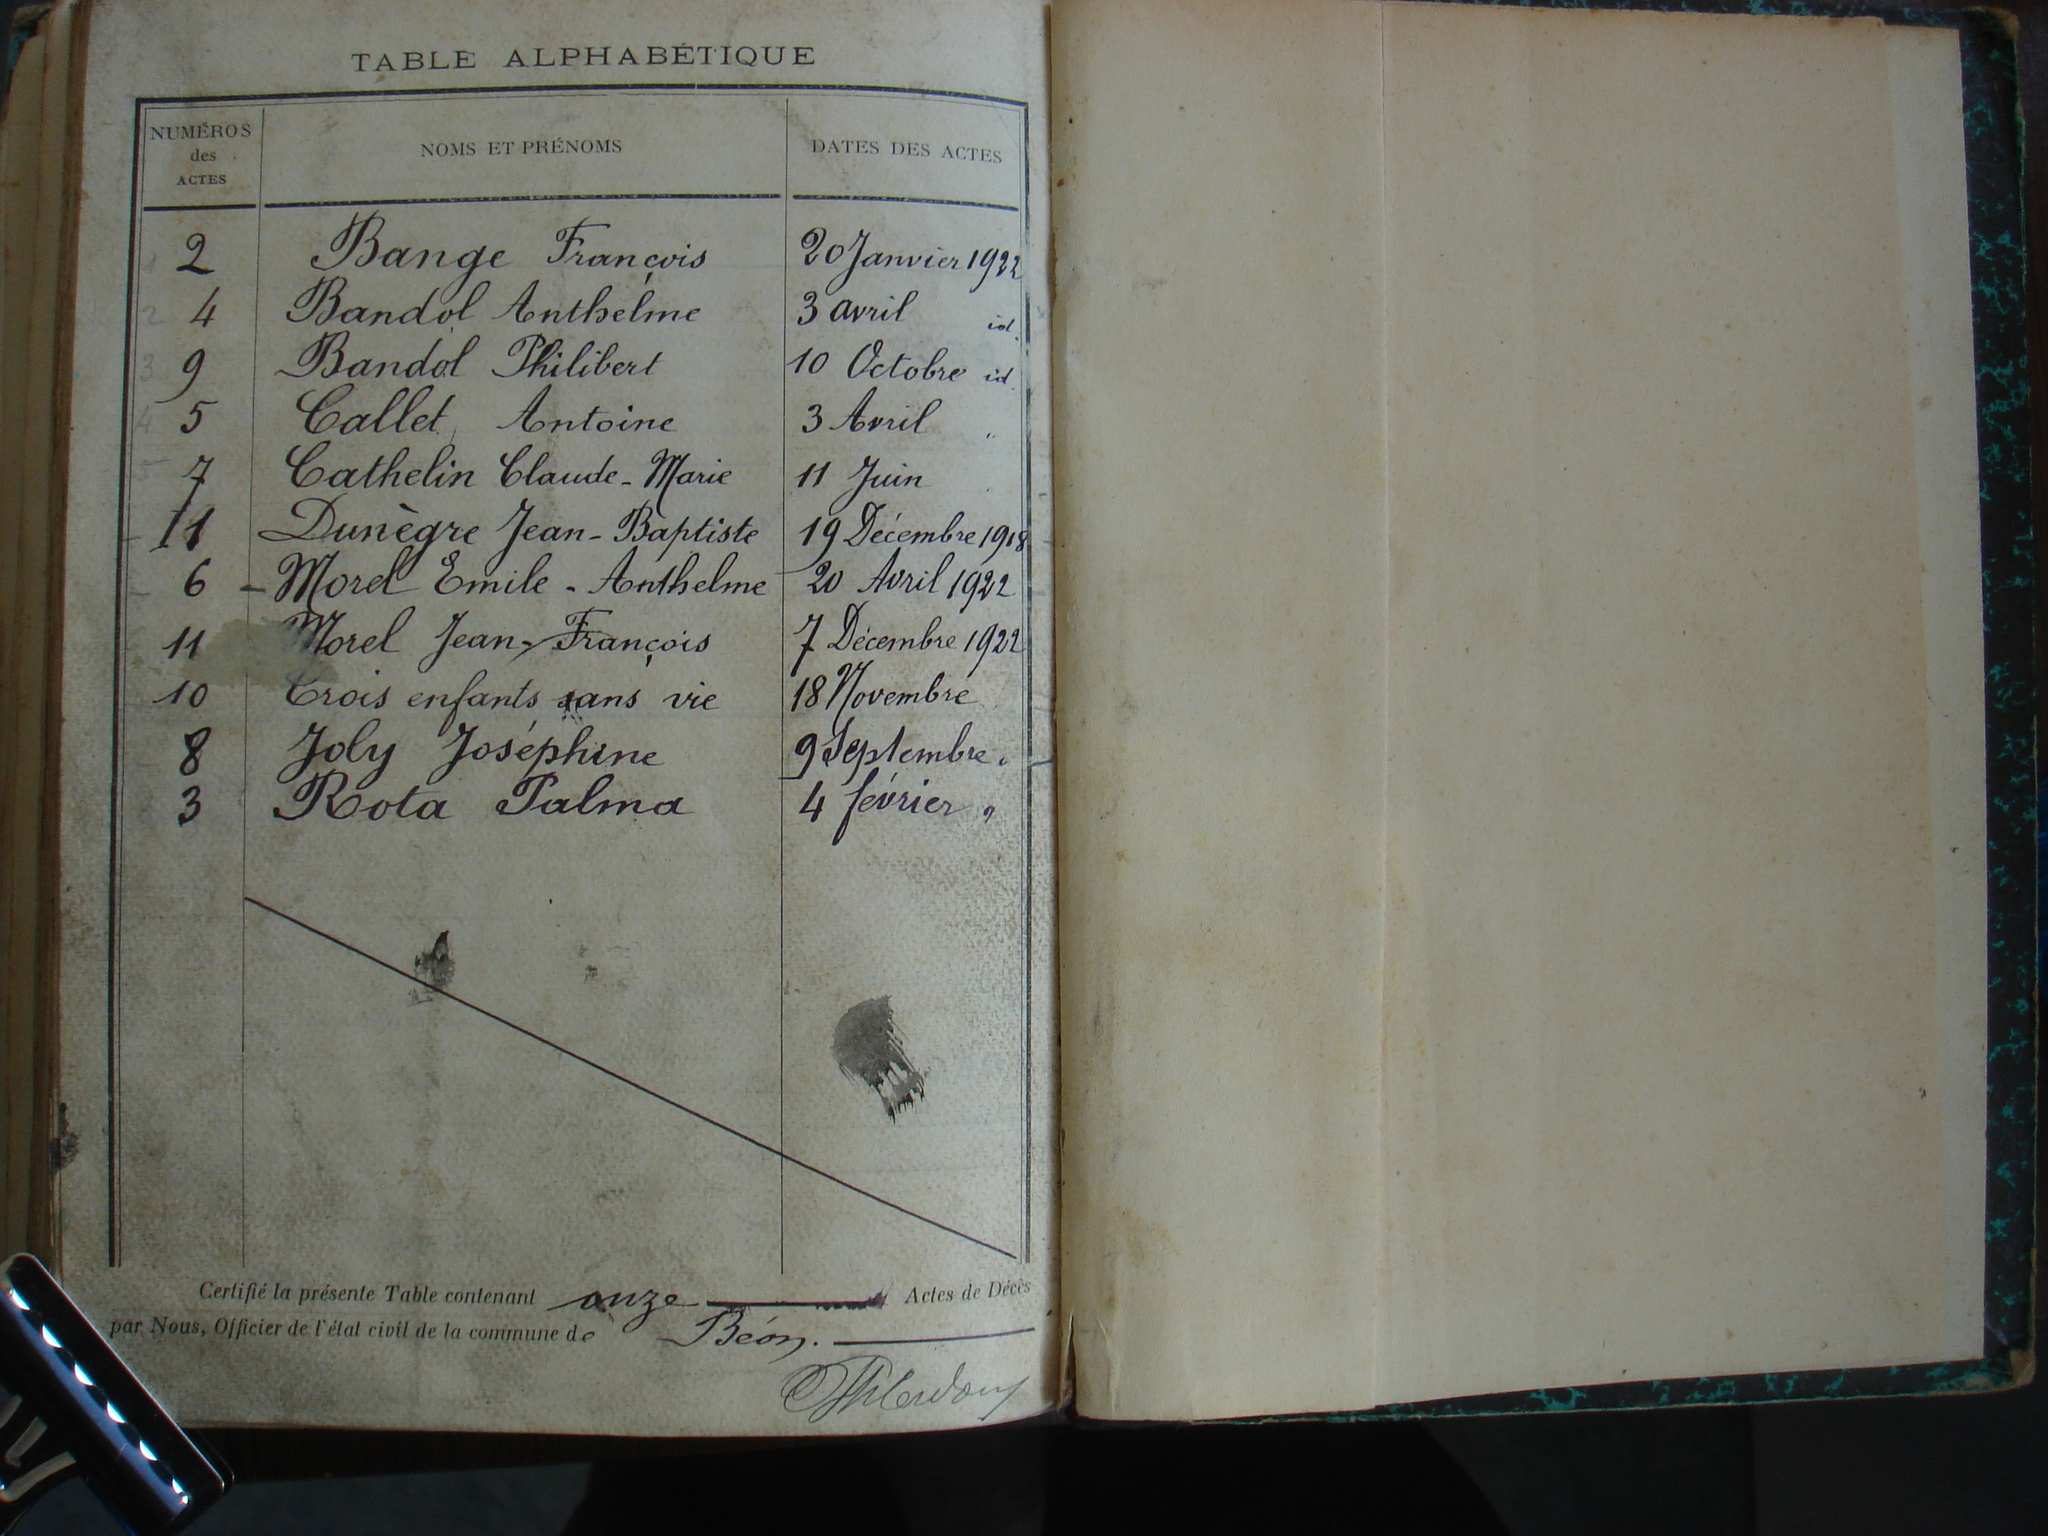 TABLE ALPHABÉTIQUE
NUMÉROS des ACTES NOMS ET PRÉNOMS DATES DES ACTES
2 Bange François 20 Janvier 1922
4 Bandol Anthelme 3 avril id.
9 Bandol Philibert 10 Octobre id.
5 Callet Antoine 3 Avril "
7 Cathelin Claude-Marie 11 Juin
11 Dunègre Jean-Baptiste 19 Décembre 1918
6 - Morel Emile-Anthelme 20 Avril 1922
11 Morel Jean-François 7 Décembre 1922
10 Trois enfants sans vie 18 Novembre
8 Joly Joséphine 9 Septembre "
3 Rota Palma 4 février "
Certifié la présente Table contenant onze Actes de Décès
par Nous, Officier de l'état civil de la commune de Béon.